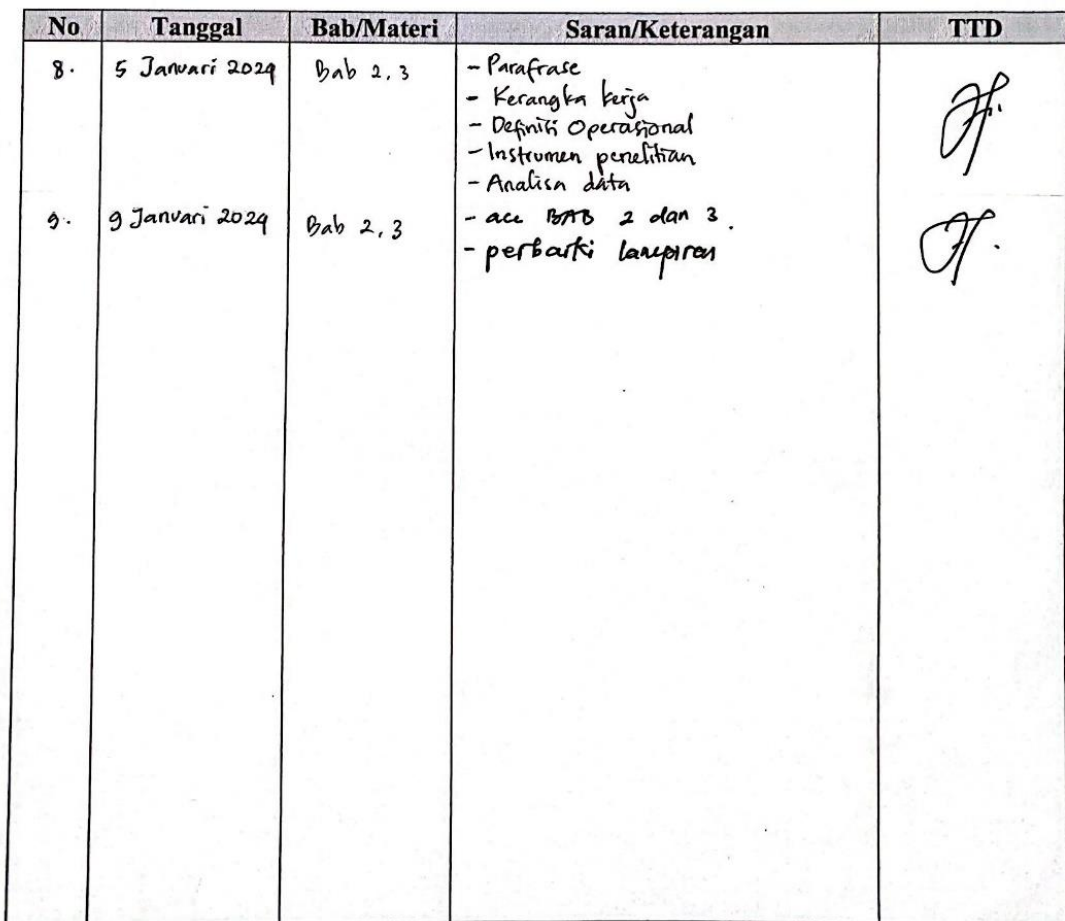 No Tanggal Bab/Materi Saran/Keterangan TTD
8. 5 Januari 2024 Bab 2, 3 - Parafrase
- Kerangka kerja
- Definisi Operasional
- Instrumen penelitian
- Analisa data
9. 9 Januari 2024 Bab 2, 3 - acc BAB 2 dan 3.
- perbaiki lampiran